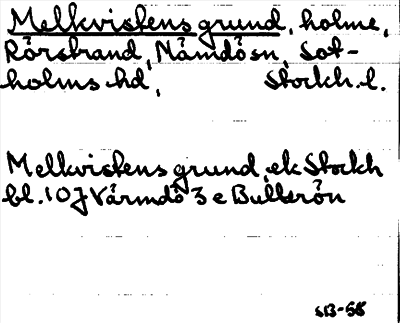 Mellkvistens grund, holme,
Rörstrand, Nämdö sn, Sot-
holms hd, Stockh. l.
Mellkvistens grund, ek Stockh
bl. 10 J Värmdö 3 e Bullerön
SB-68